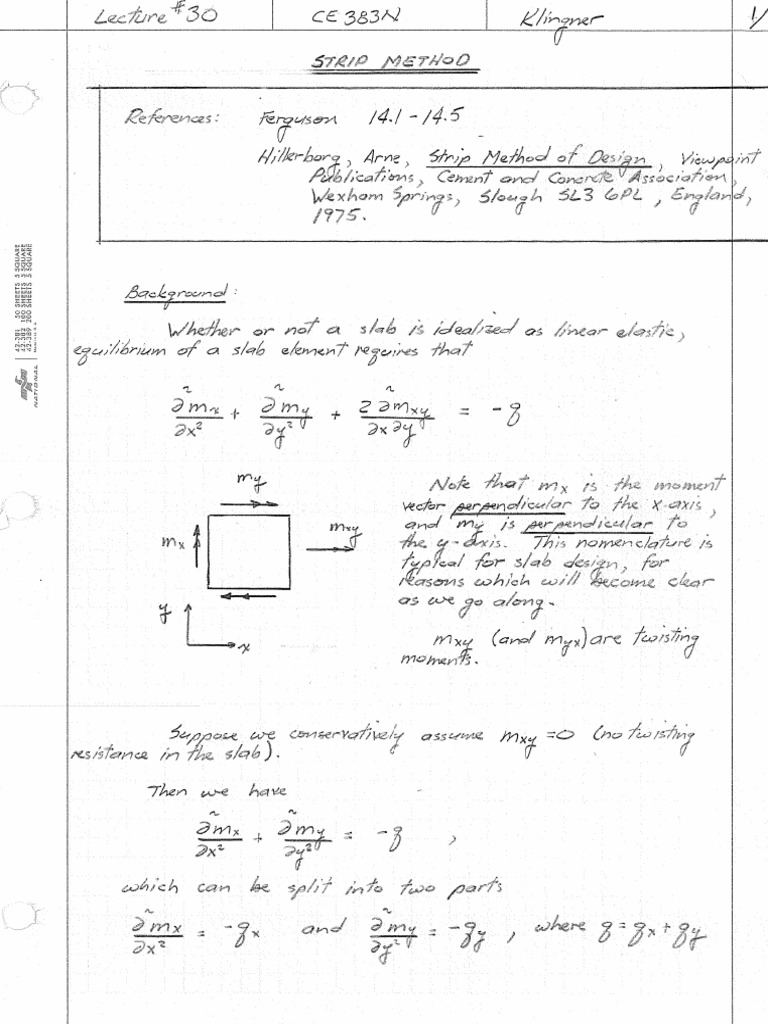 Lecture #30 CE 383N Klingner 1/
STRIP METHOD
References: Ferguson 14.1-14.5
Hillerborg, Arne, Strip Method of Design, Viewpoint
Publications, Cement and Concrete Association,
Wexham Springs, Slough SL3 6PL, England,
1975.
42-381 50 SHEETS 5 SQUARE
42-382 100 SHEETS 5 SQUARE
42-389 200 SHEETS 5 SQUARE
NATIONAL
Background:
Whether or not a slab is idealized as linear elastic,
equilibrium of a slab element requires that
∂²mx/∂x² + ∂²my/∂y² + 2∂²mxy/∂x∂y = -q
my
mx
mxy
y
x
Note that mx is the moment
vector perpendicular to the x-axis,
and my is perpendicular to
the y-axis. This nomenclature is
typical for slab design, for
reasons which will become clear
as we go along.
mxy (and myx) are twisting
moments.
Suppose we conservatively assume mxy = 0 (no twisting
resistance in the slab).
Then we have
∂²mx/∂x² + ∂²my/∂y² = -q ,
which can be split into two parts
∂²mx/∂x² = -qx and ∂²my/∂y² = -qy , where q = qx + qy